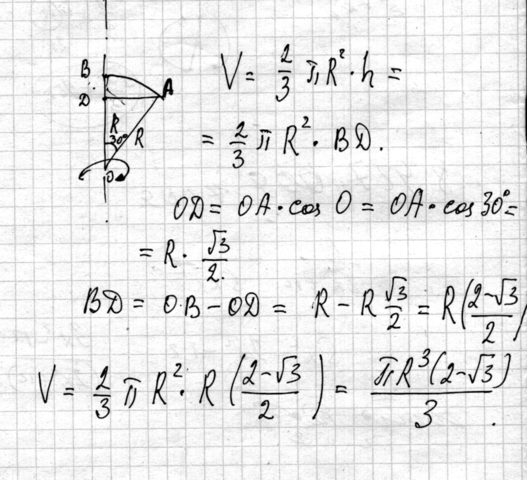 B
D
A
R
30°
R
O
V = 2/3 πR²·h =
= 2/3 πR²·BD.
OD = OA·cos O = OA·cos 30° =
= R·√3/2.
BD = OB−OD = R−R √3/2 = R(2−√3/2)
V = 2/3 πR²·R(2−√3/2) = πR³(2−√3)/3.